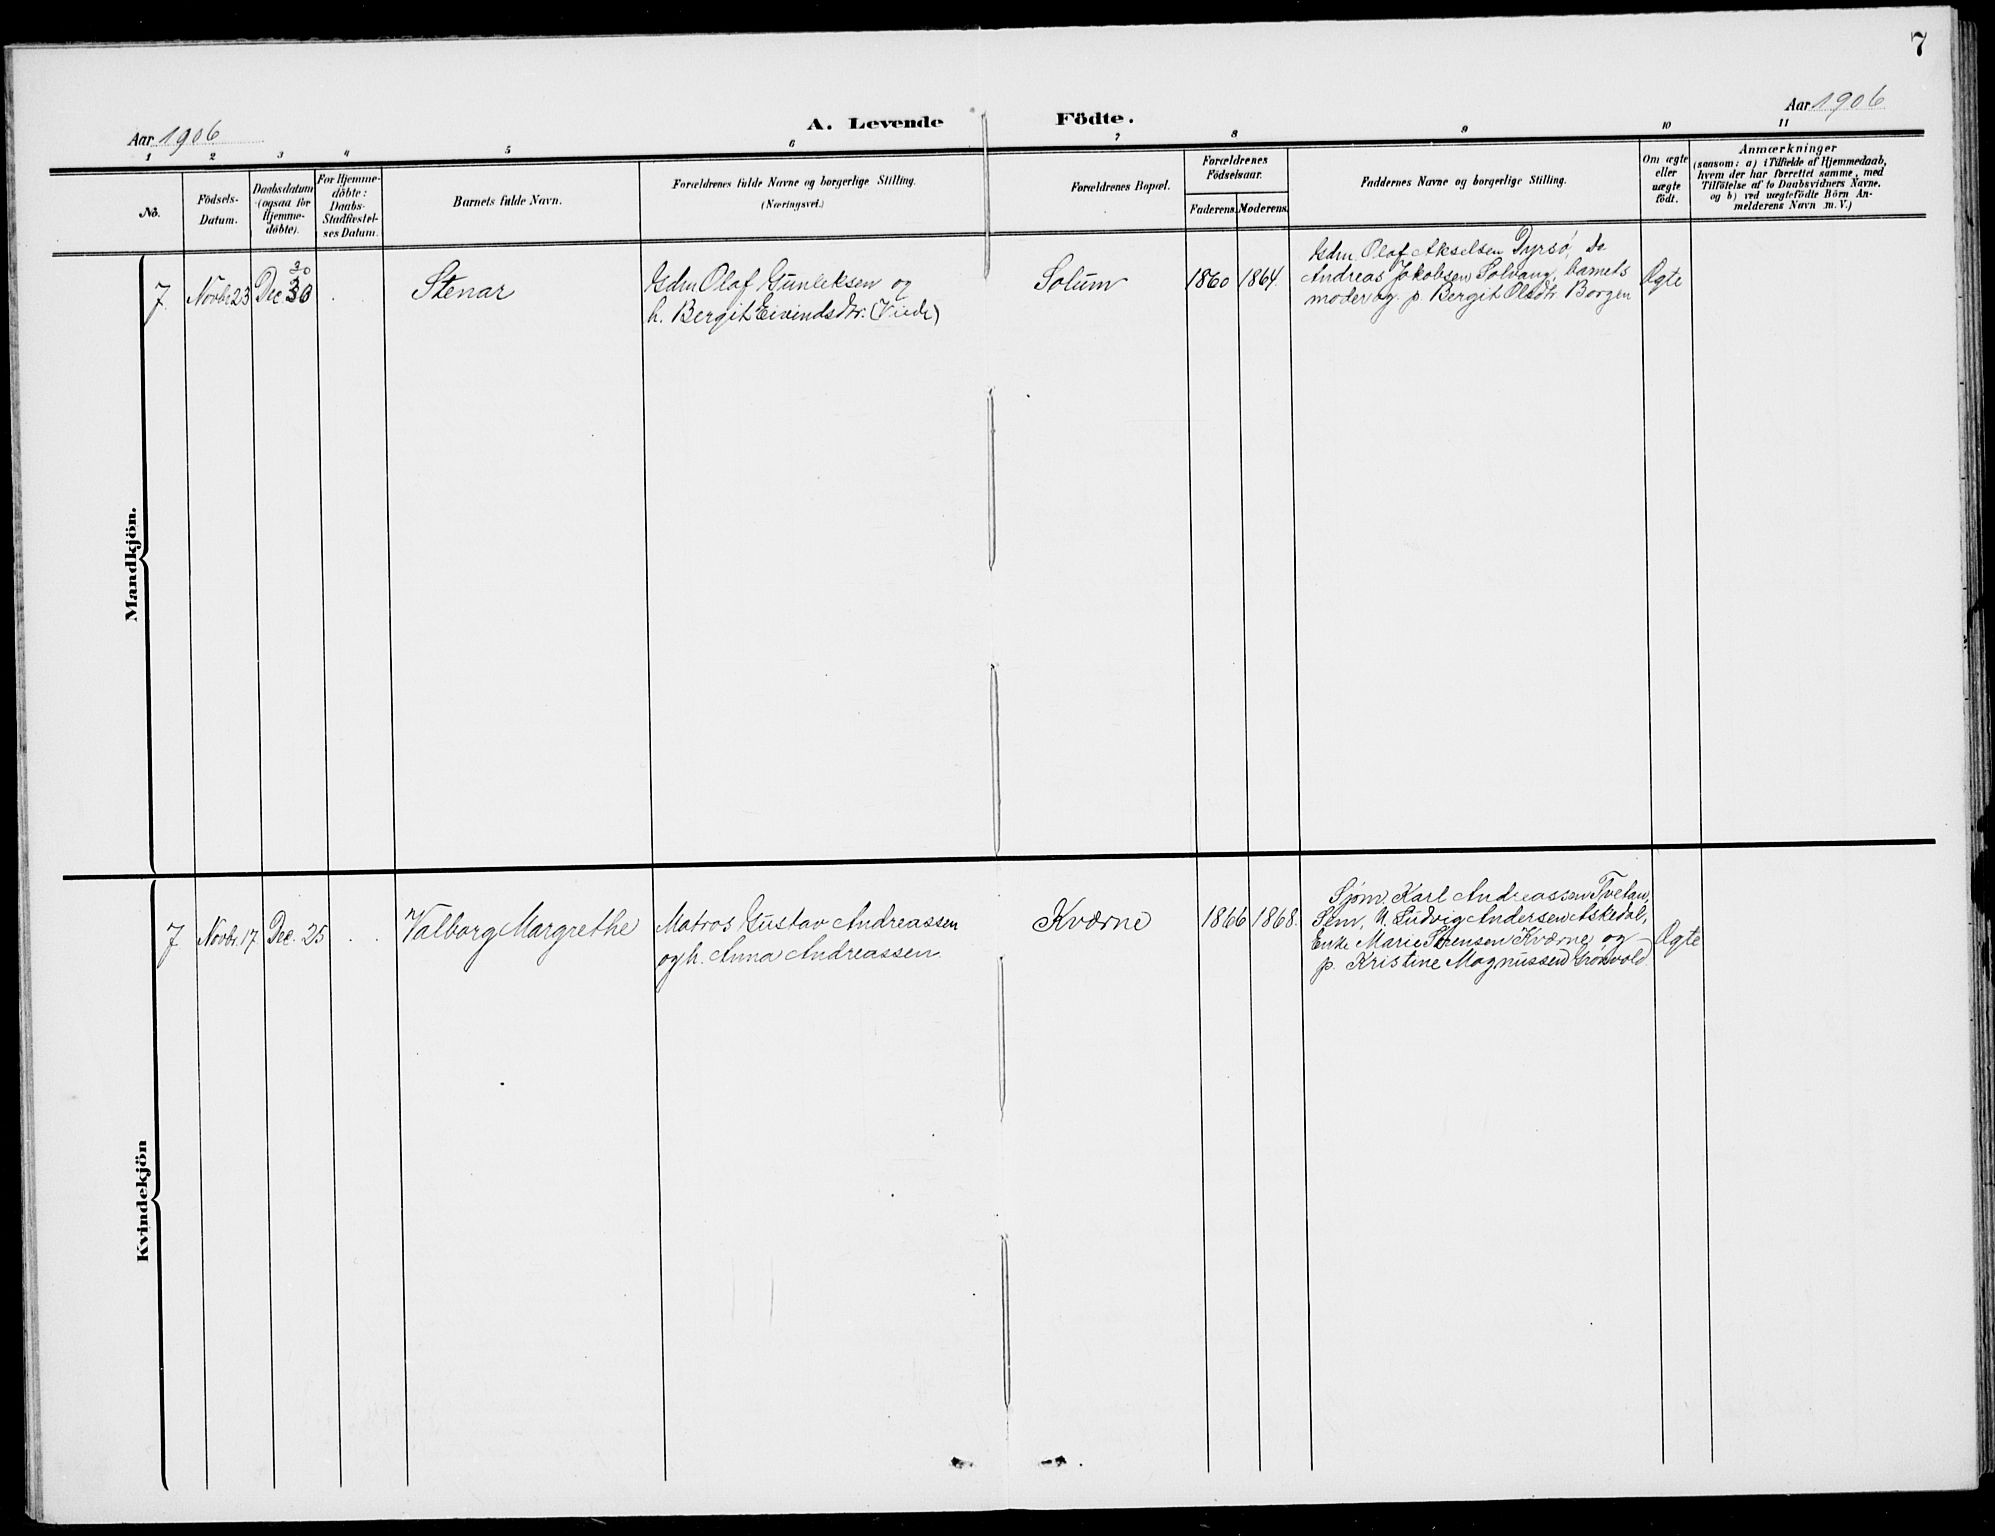 7
Aar 1906
A. Levende Födte.
Aar 1906
1 2 3 4 5 6 7 8 9 10 11
No.
Födsels-
Datum.
Daabsdatum
(ogsaa for
Hjemme-
döbte).
For Hjemme-
döbte:
Daabs-
Stadfæstel-
ses Datum.
Barnets fulde Navn.
Forældrenes fulde Navne og borgerlige Stilling.
(Næringsvei.)
Forældrenes Bopæl.
Forældrenes
Födselsaar.
Faderens. Moderens.
Faddernes Navne og borgerlige Stilling.
Om ægte
eller
uægte
födt.
Anmærkninger
(saasom: a) i Tilfælde af Hjemmedaab,
hvem der har forrettet samme, med
Tilföielse af to Daabsvidners Navne.
og b) ved uægtefödte Börn An-
melderens Navn m. V.)
Mandkjön.
7 Novbr. 23
30
Dec. 30
Stenar
Gdm Olaf Gunleksen og
h. Bergit Eivindsdtr.
Solum
1860 1864.
Gdm. Olaf Akselsen Dyrsö, do
Andreas Jakobsen Solvang, barnets
moder og p. Bergit Olsdtr. Borgen
Ægte
Kvindekjön
7 Novbr. 17 Dec. 25
Valborg Margrethe
Matros Gustav Andreassen
og h. Anna Andreassen
Kværne
1866 1868.
Sjöm. Karl Andreassen Tvetan,
Ludvig Andersen Askedal,
Enke Marie Sörensen Kværne og
p. Kristine Magnussen Grönvold
Ægte